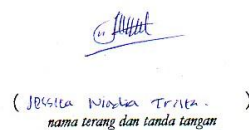 ( Jessica Niadia Trista. )
nama terang dan tanda tangan